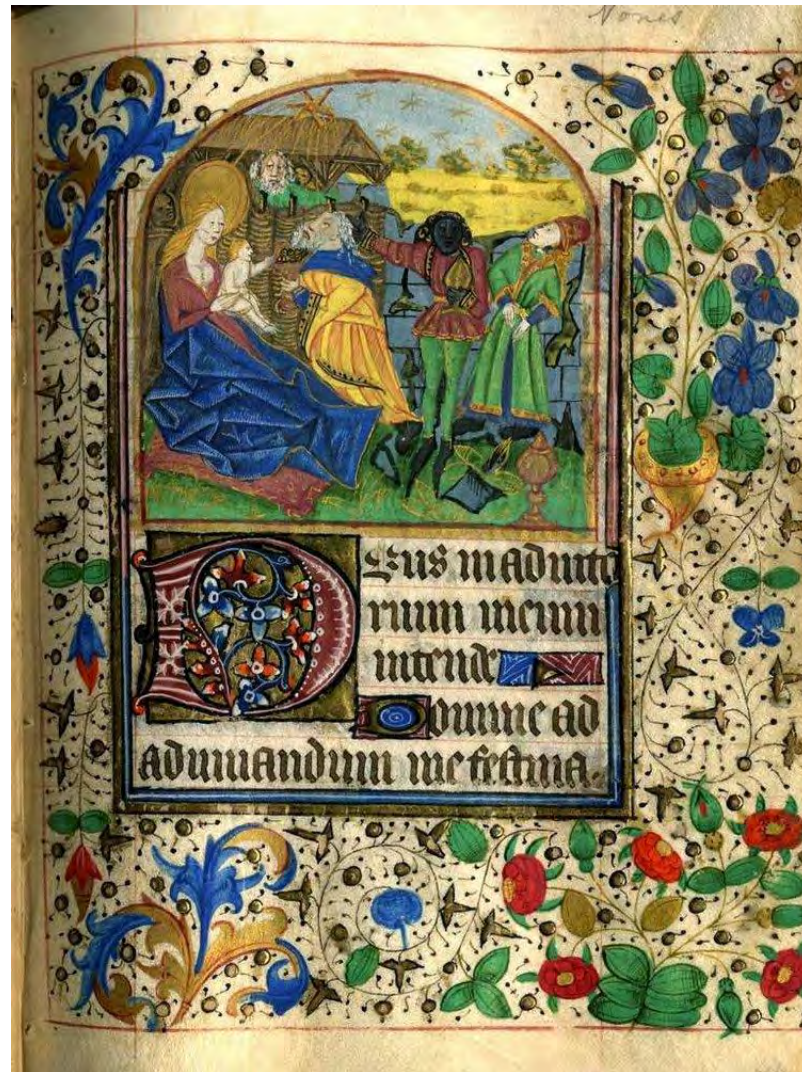 Nones
Deus in adiuto
rium meum
intende
Domine ad
adiuuandum me festina.